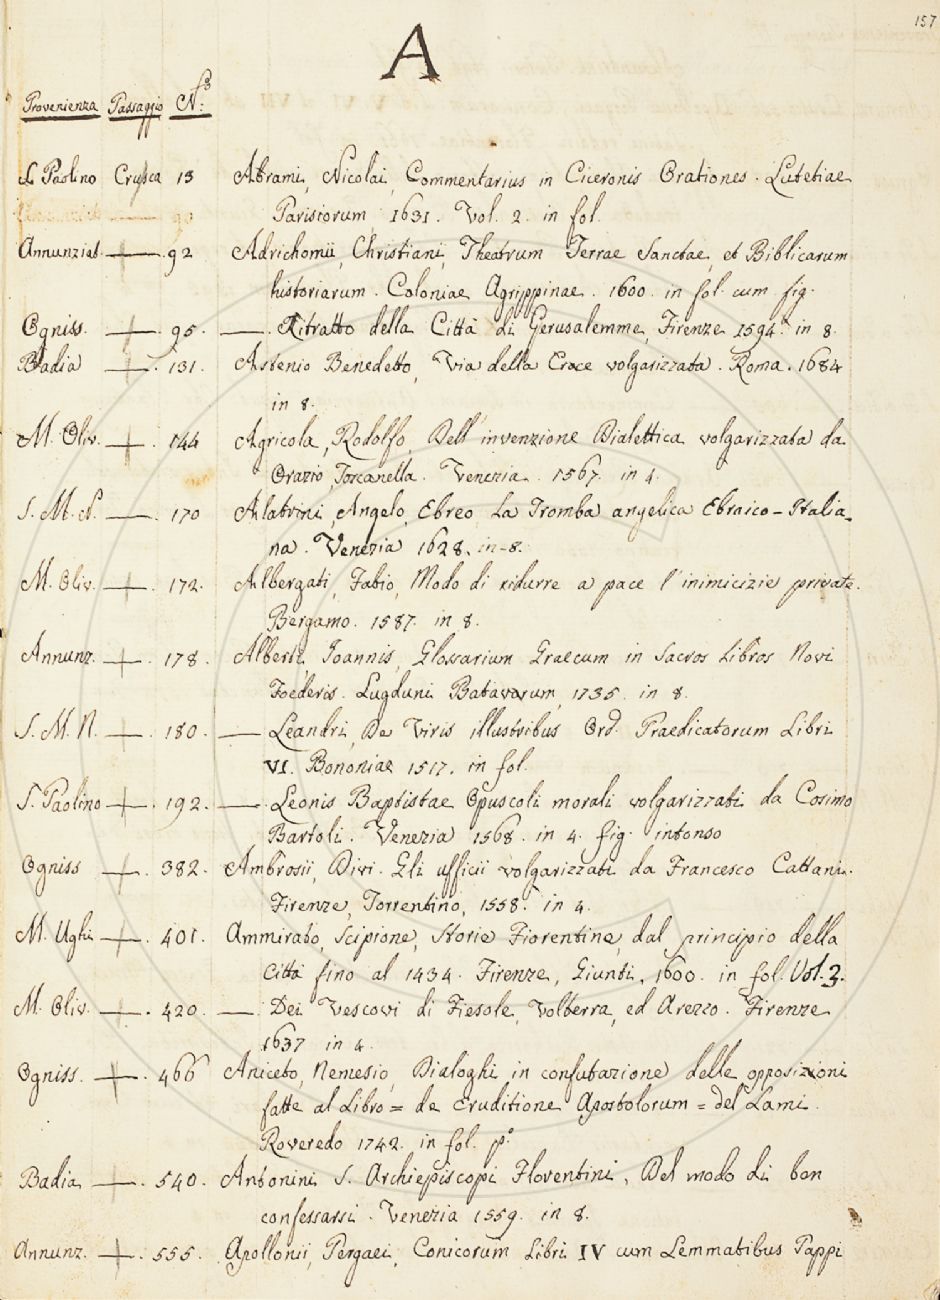 157
A
Provenienza Passaggio N.i
S. Paolino Crusca 13 Abrami, Nicolai, Commentarius in Ciceronis Orationes. Lutetiae
Parisiorum 1631. Vol. 2. in fol.
Annunziat. — . 92 Adrichomii, Christiani, Theatrum Terrae Sanctae, et Biblicarum
historiarum. Coloniae Agrippinae. 1600. in fol. cum fig.
Ogniss. — . 95. — . Ritratto della Città di Gerusalemme, Firenze 1594. in 8.
Badia — . 131. Astenio Benedetto, Via della Croce volgarizzata. Roma. 1684
in 8.
M. Oliv. — . 144 Agricola, Rodolfo, Dell'invenzione Dialettica volgarizzata da
Orazio Toscanella. Venezia. 1567. in 4.
S. M. N. — . 170 Alatrini, Angelo, Ebreo, La Tromba angelica Ebraico-Italia-
na. Venezia 1628. in-8.
M. Oliv. — . 172. Albergati, Fabio, Modo di ridurre a pace l'inimicizie private.
Bergamo. 1587. in 8.
Annunz. — . 178. Alberti, Joannis, Glossarium Graecum in Sacros Libros Novi
Foederis. Lugduni Batavorum, 1735. in 8.
S. M. N. — . 180. — Leandri, De Viris illustribus Ord. Praedicatorum Libri
VI. Bononiae 1517. in fol.
S. Paolino — . 192. — . Leonis Baptistae Opuscoli morali volgarizzati da Cosimo
Bartoli. Venezia 1568. in 4. fig. intonso
Ogniss — . 382. Ambrosii, Divi. Gli ufficii volgarizzati da Francesco Cattani.
Firenze, Torrentino, 1558. in 4.
M. Ughi — . 401. Ammirato, Scipione, Storie Fiorentine, dal principio della
Città fino al 1434. Firenze, Giunti, 1600. in fol. Vol. 3.
M. Oliv. — . 420. — . Dei Vescovi di Fiesole, Volterra, ed Arezzo. Firenze
1637 in 4.
Ogniss. — . 466 Aniceto, Nemesio, Dialoghi in confutazione delle opposizioni
fatte al Libro = de Eruditione Apostolorum = del Lami.
Roveredo 1742. in fol. p.o
Badia — . 540. Antonini S. Archiepiscopi Florentini, Del modo di ben
confessarsi. Venezia 1559. in 8.
Annunz. — . 555. Apollonii, Pergaei, Conicorum Libri IV cum Lemmatibus Pappi